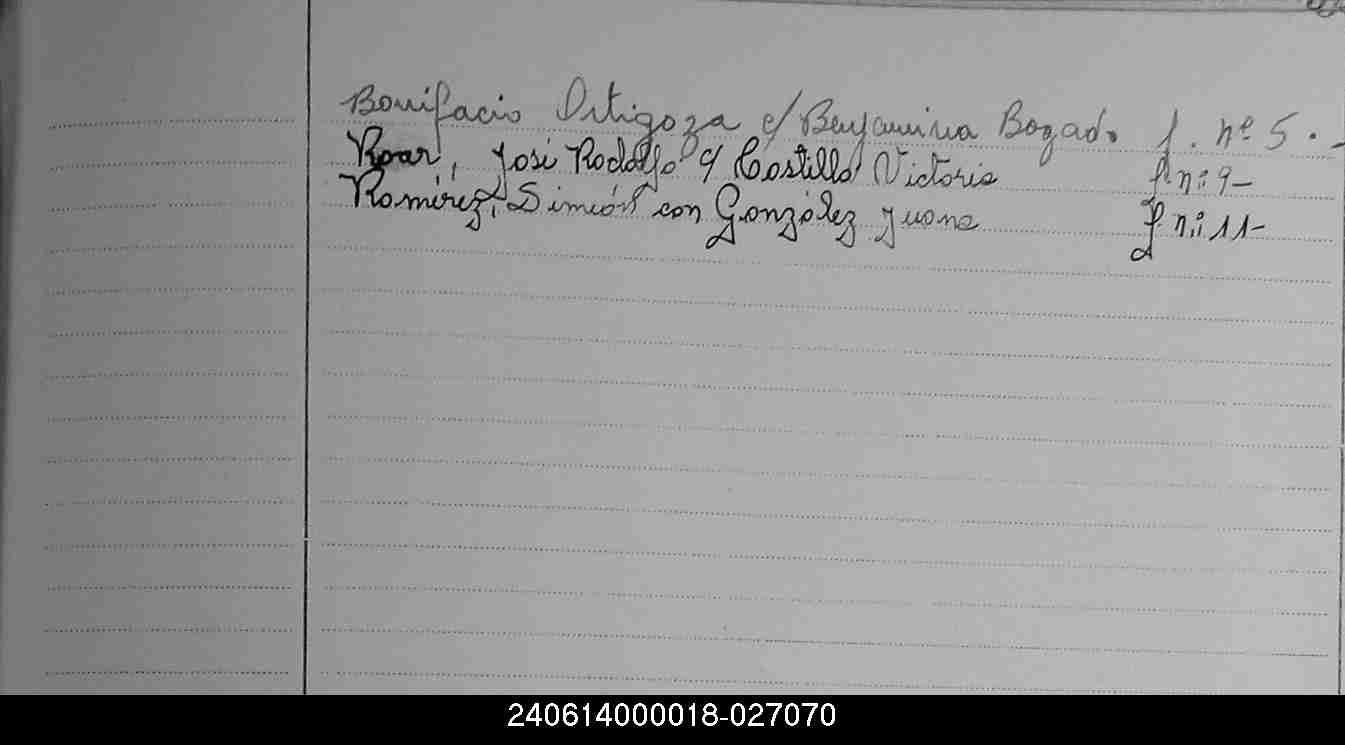 Bonifacio Ortigoza c/ Benjamina Bogado f. nº 5.-
Roa, José Rodolfo c/ Costillo Victoria f nº 9-
Ramírez, Simeón con González Juana f nº 11-
240614000018-027070